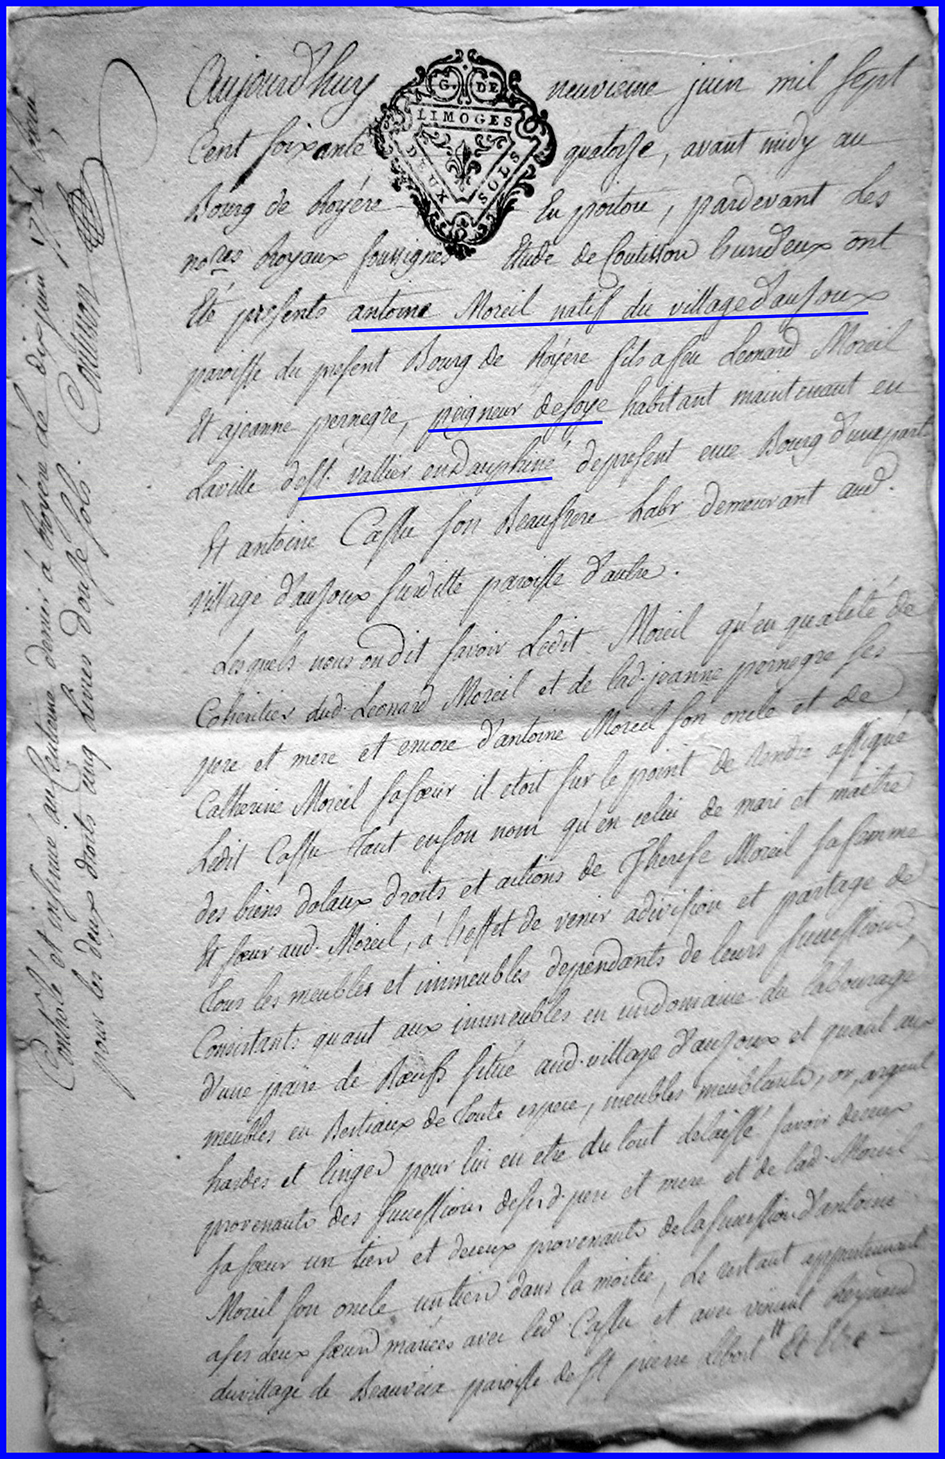 Aujourd'huy neuvieme juin mil sept
G. DE
LIMOGES
DEUX SOLS
Cent soixante quatorse, avant midy au
Bourg de Royére En poitou, pardevant les
nores Royaux soussignés Etude de Coutisson ont
Eté presents antoine Moreil natif du village d'aujoux
paroisse du present Bourg de Royere fils a feu Leonard Moreil
Et a jeanne pernegre, peigneur de soye habitant maintenant en
La ville de st. vallier en Dauphiné depresent en ce Bourg d'une part
Et antoine Cassu son Beaufrere Labr demeurant aud.
village d'aujoux susditte paroisse d'autre.
Lesquels nous on dit savoir Ledit Moreil qu'en qualité de
Coheritier dud. Leonard Moreil et de lad. jeanne pernegre ses
pere et mere et encore d'antoine Moreil son oncle et de
Catherine Moreil sa sœur il etoit sur le point de rendre assigné
Ledit Cassu tant en son nom qu'en celui de mari et maitre
des biens dotaux droits et actions de Therese Moreil sa femme
Et sœur aud. Moreil, á l'effet de venir a division et partage de
tous les meubles et immeubles dependants de leurs successions
Consistants quant aux immeubles en un domaine du labourage
d'une paire de Bœufs situé aud. village d'aujoux et quant aux
meubles en Bestiaux de toute espece, meubles meublants, or, argent
hardes et linges pour lui en etre du tout delaissé savoir de ceux
provenants des successions de ses d. pere et mere et de lad. Moreil
sa sœur un tiers et de ceux provenants de la succession d'antoine
Moreil son oncle un tiers dans la moitié, Le restant appartenant
a ses deux sœurs mariées avec led. Cassu et avec vincent Reynaud
du village de Beauvais paroisse de st pierre Lebost Et Etre
Controlé et insinué au Centieme denier á Royere le dix juin 1774 Reçu
pour les deux droits cinq livres douse sols. Coutisson